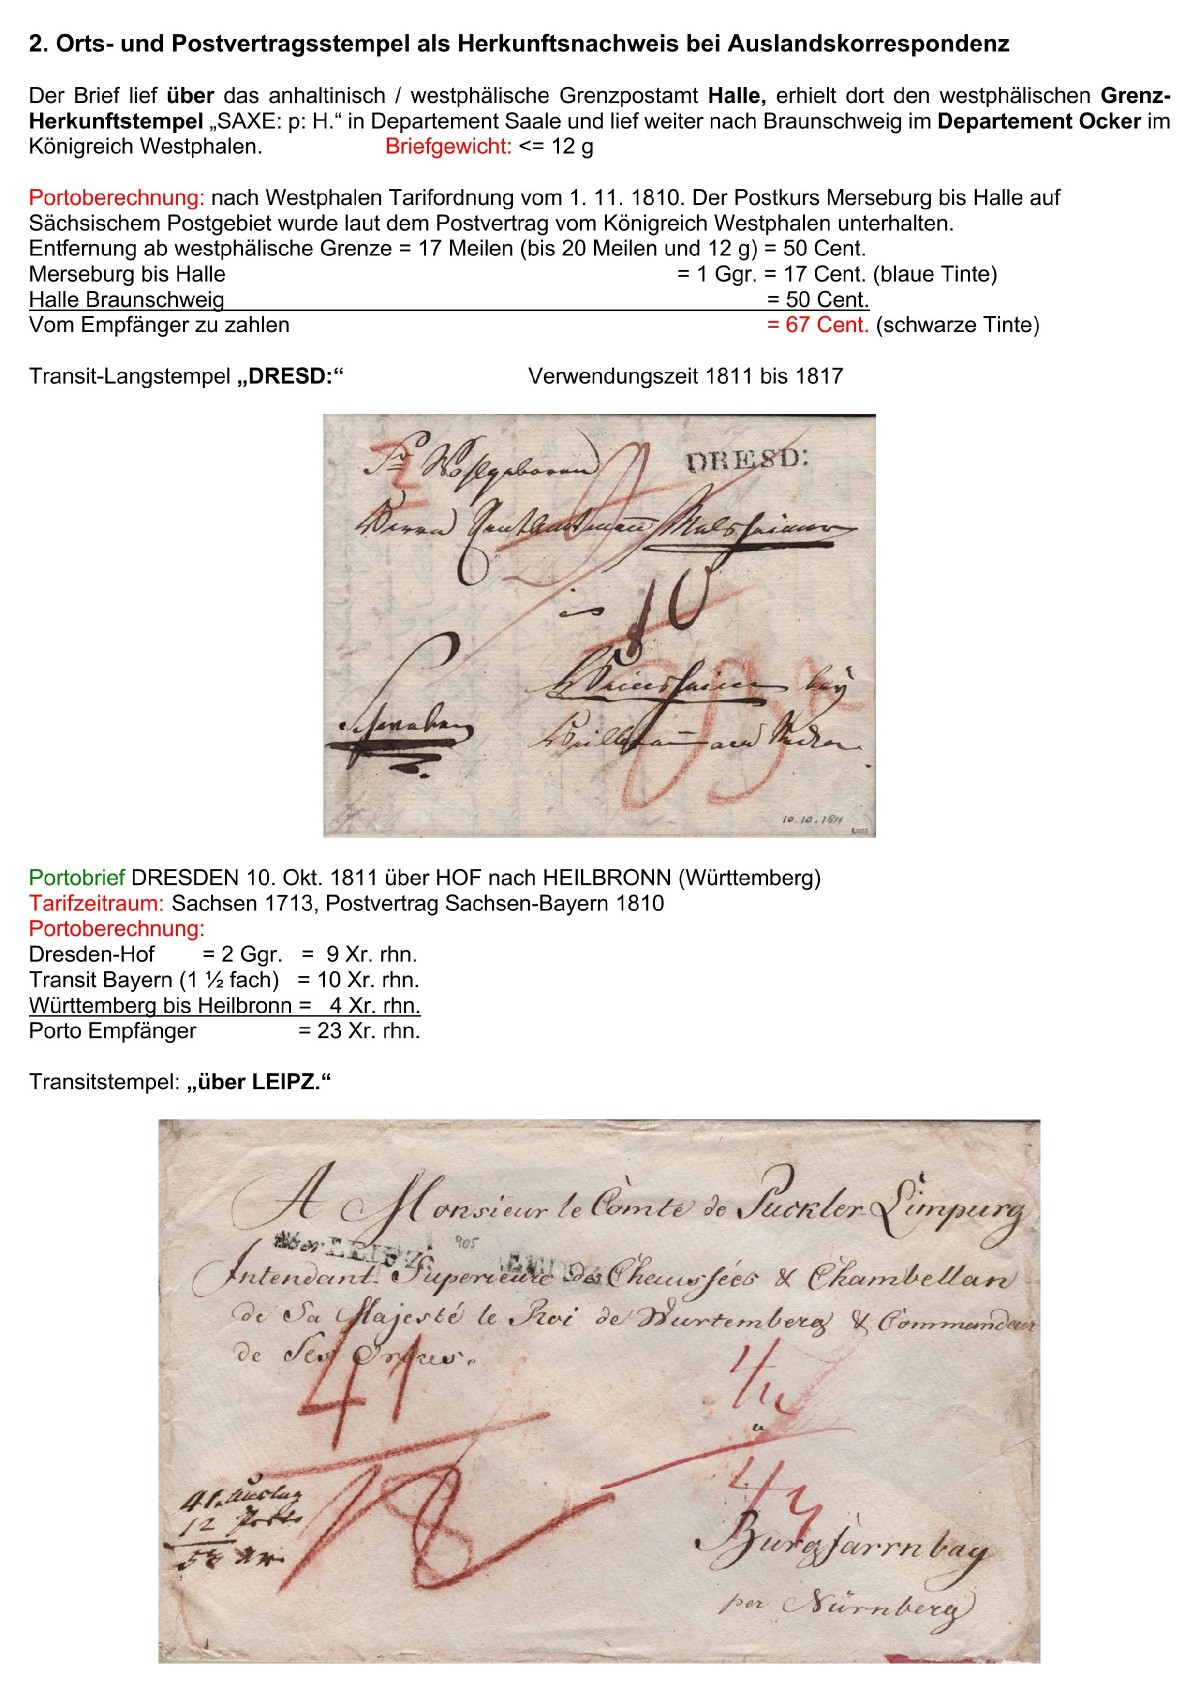 2. Orts- und Postvertragsstempel als Herkunftsnachweis bei Auslandskorrespondenz
Der Brief lief über das anhaltinisch / westphälische Grenzpostamt Halle, erhielt dort den westphälischen Grenz-
Herkunftstempel „SAXE: p: H.“ in Departement Saale und lief weiter nach Braunschweig im Departement Ocker im
Königreich Westphalen. Briefgewicht: <= 12 g
Portoberechnung: nach Westphalen Tarifordnung vom 1. 11. 1810. Der Postkurs Merseburg bis Halle auf
Sächsischem Postgebiet wurde laut dem Postvertrag vom Königreich Westphalen unterhalten.
Entfernung ab westphälische Grenze = 17 Meilen (bis 20 Meilen und 12 g) = 50 Cent.
Merseburg bis Halle = 1 Ggr. = 17 Cent. (blaue Tinte)
Halle Braunschweig = 50 Cent.
Vom Empfänger zu zahlen = 67 Cent. (schwarze Tinte)
Transit-Langstempel „DRESD:“ Verwendungszeit 1811 bis 1817
DRESD:
Wohlgeboren
Herrn
in
10
bey
10.10.1811
Portobrief DRESDEN 10. Okt. 1811 über HOF nach HEILBRONN (Württemberg)
Tarifzeitraum: Sachsen 1713, Postvertrag Sachsen-Bayern 1810
Portoberechnung:
Dresden-Hof = 2 Ggr. = 9 Xr. rhn.
Transit Bayern (1 ½ fach) = 10 Xr. rhn.
Württemberg bis Heilbronn = 4 Xr. rhn.
Porto Empfänger = 23 Xr. rhn.
Transitstempel: „über LEIPZ.“
A Monsieur le Comte de Puckler Limpurg
über LEIPZ. 905
Intendant Superieure des Chaussées & Chambellan
de Sa Majesté le Roi de Wurtemberg & Commandeur
de Ses Ordres.
41
18
41 Auslag
12 Porto
Burgfarrnbay
per Nürnberg